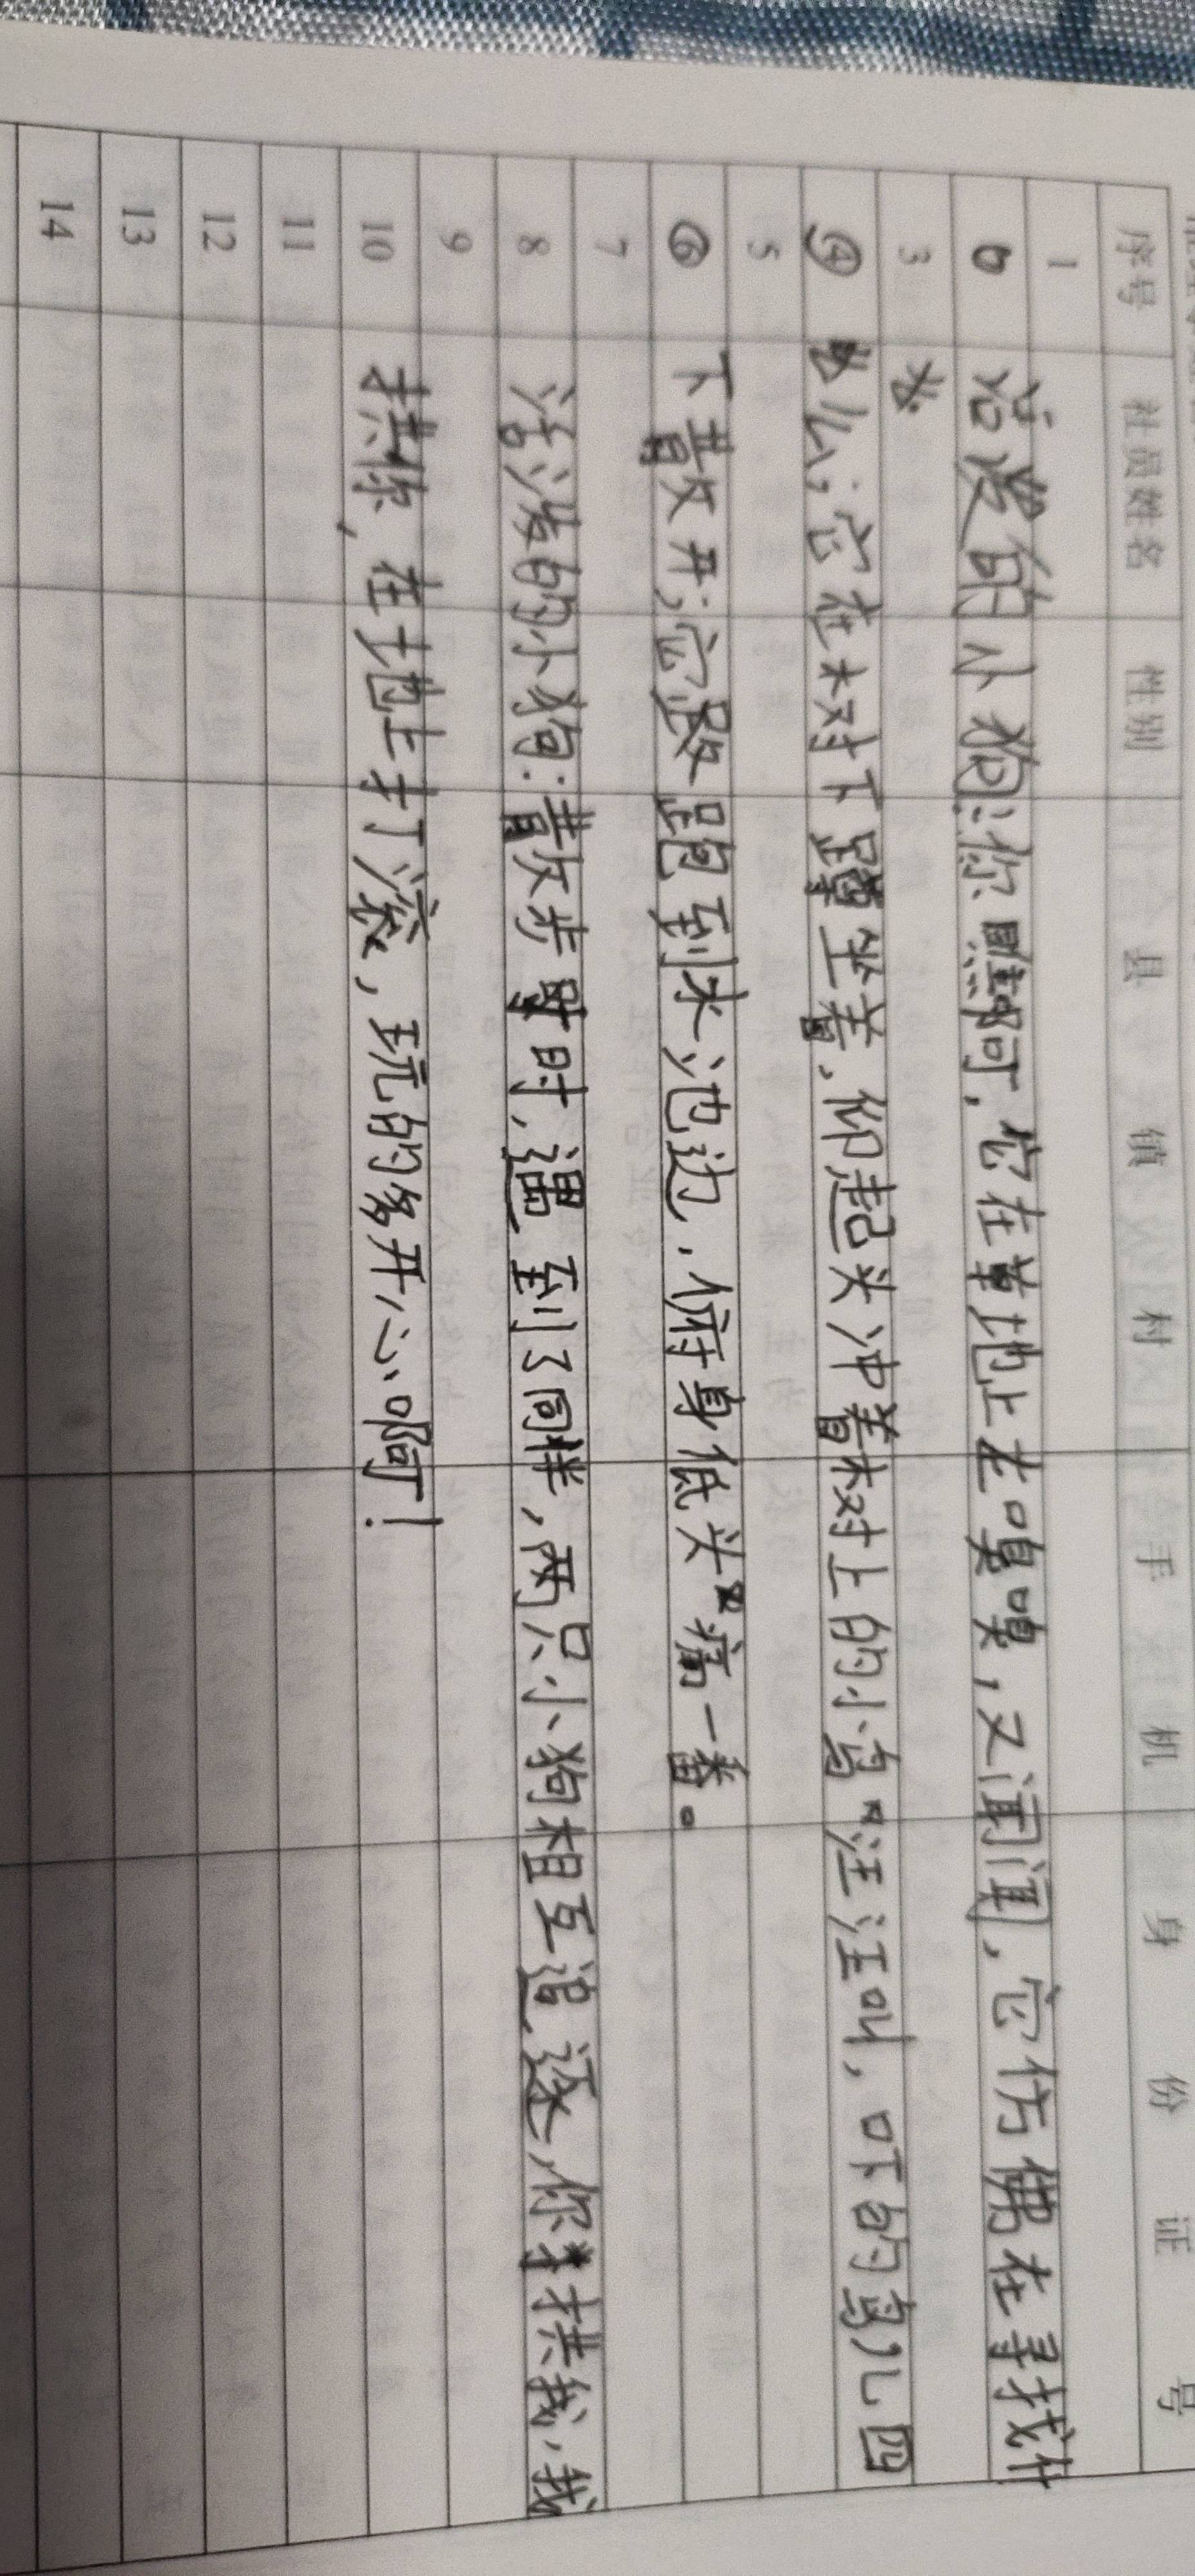 序号 社员姓名 性别 县 镇 村 手机 身份证号
1
活泼的小狗:你瞧啊,它在草地上左嗅嗅,又闻闻,它仿佛在寻找什
3
④ 么,它在树下蹲坐着,仰起头冲着树上的小鸟"汪汪叫,吓的鸟儿四
5
⑥ 下散开;它跑到水池边,俯身低头 痛一番。
7
8 活泼的小狗:散步时,遇到了同样,两只小狗相互追逐,你拱我,我
9
10 拱你,在地上打滚,玩的多开心啊!
11
12
13
14